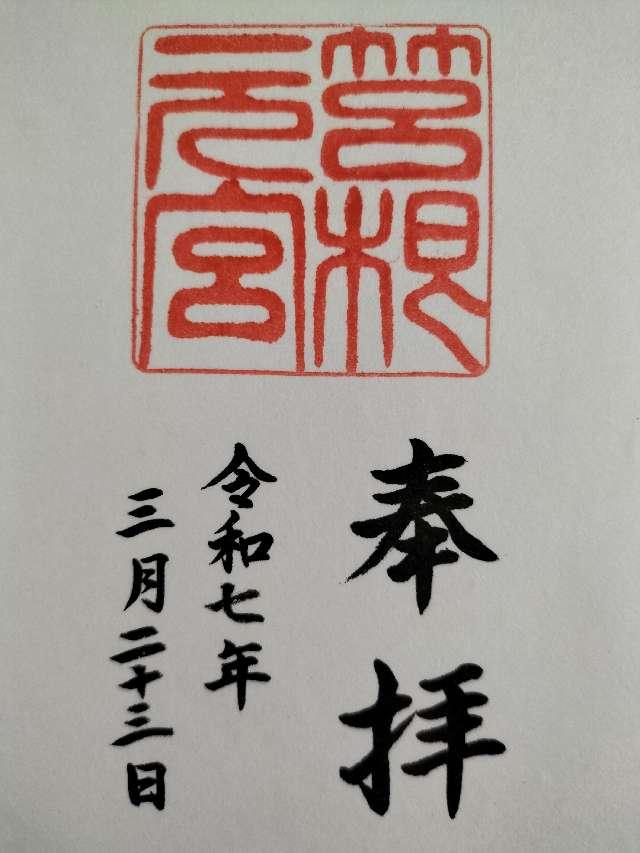 筥根
元宮
奉拝
令和七年
三月二十三日